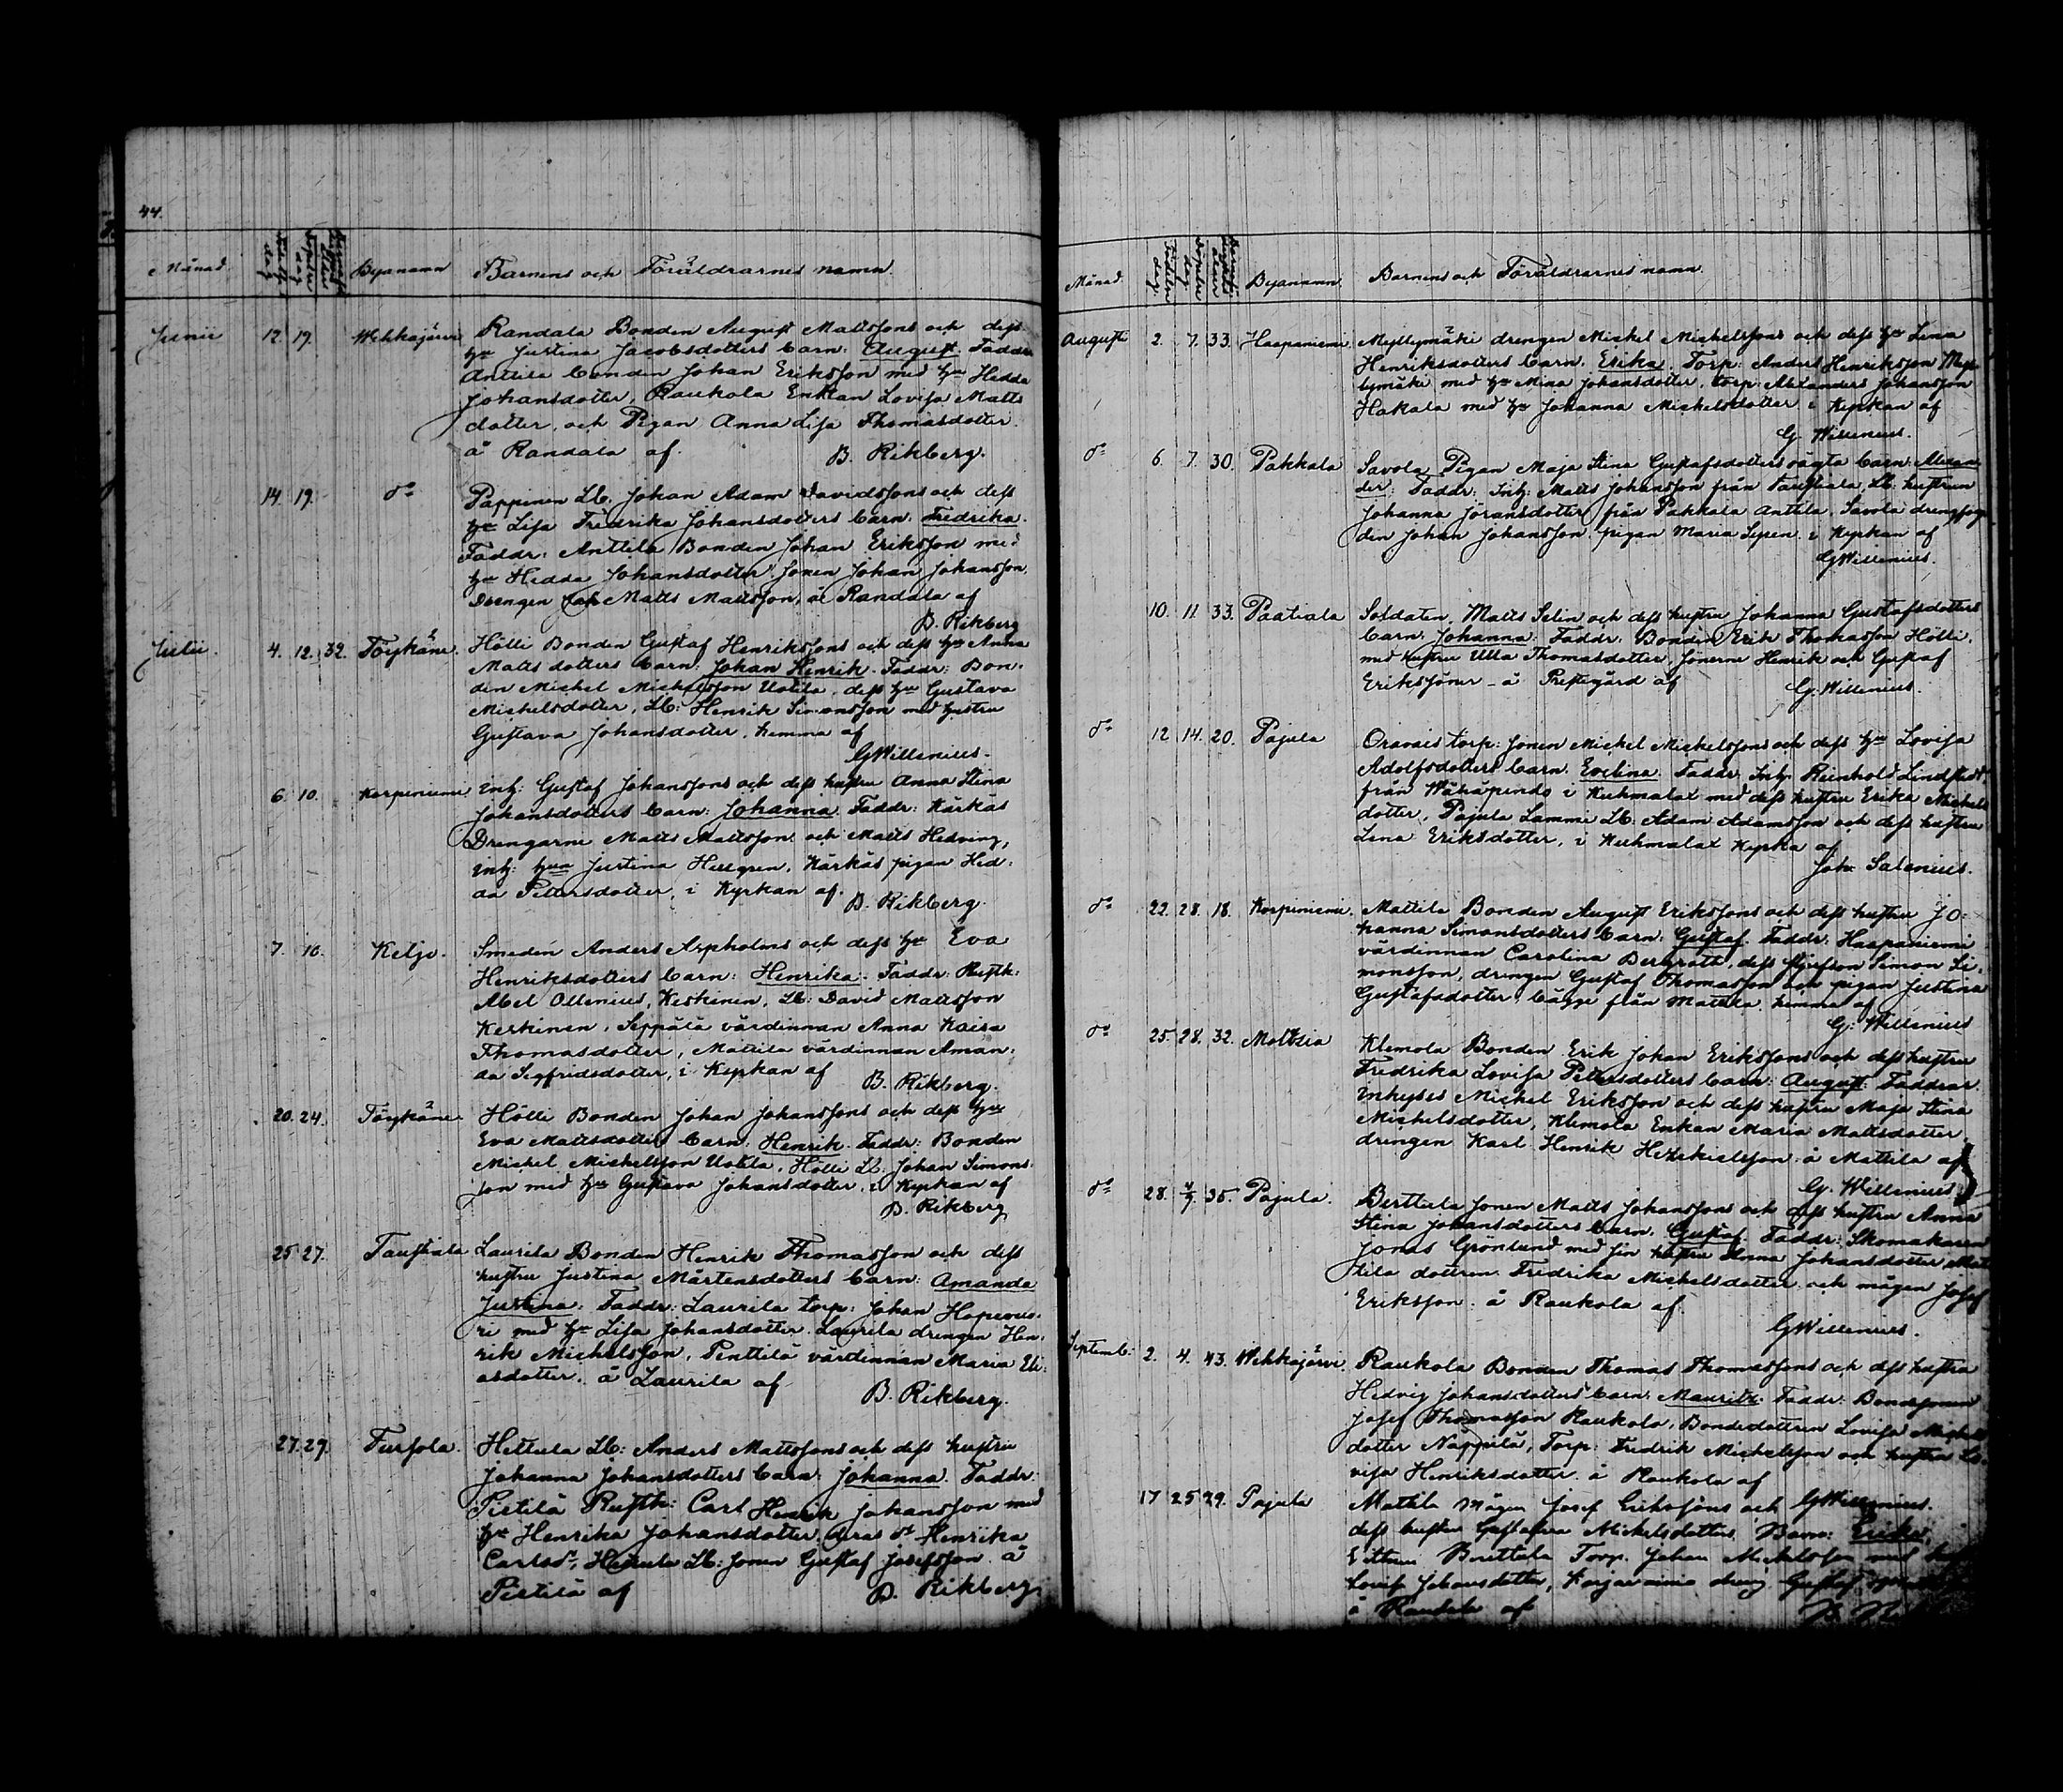 44.
Månad. Födelse dag Döpelse dag Byanamn Barnens och Föräldrarnes namn.
Junii 12. 19. Wehkajärvi Randala Bonden August Mattssons och dess
hu Justina Jacobsdotters barn: August. Faddr:
Anttila bonden Johan Eriksson med hu Hedda
Johansdotter, Raukola Enkan Lovisa Matts
dotter, och Pigan Anna Lisa Thomasdotter.
å Randala af. B. Rikberg.
14 19. do Pappinen Lb. Johan Adam Davidssons och dess
hu Lisa Fredrika Johansdotters barn. Fredrika.
Faddr: Anttila Bonden Johan Eriksson med
hu Hedda Johansdotter, sonen Johan Johansson,
Drengen Matts Mattsson, å Randala af
B. Rikberg
Julii. 4. 12. 32. Töykänä. Hölli Bonden Gustaf Henrikssons och dess hu Anna
Matts dotters barn: Johan Henrik. Faddr: Bon-
den Michel Michelsson Uotila, dess hu Gustava
Michelsdotter, Lb: Henrik Simonsson med hustru
Gustava Johansdotter, hemma af
GWillenius.
6. 10. Korpiniemi Inh: Gustaf Johanssons och dess hustru Anna Stina
Johansdotters barn: Johanna. Faddr: Kärkäs
Drengarne Matts Mattsson och Matts Hedving,
Inh: hun Justina Hellgren, Kärkäs pigan Hed-
da Pettersdotter, i Kyrkan af. B. Rikberg.
7. 10. Keljo. Smeden Anders Aspholms och dess hu Eva
Henriksdotters barn: Henrika. Faddr: Rusth:
Abel Ollenius, Keskinen, Lb: David Mattsson
Keskinen, Seppälä värdinnan Anna Kaisa
Thomasdotter, Mattila värdinnan Aman-
da Sigfridsdotter, i Kyrkan af B. Rikberg.
20. 24. Töykänä Hölli Bonden Johan Johanssons och dess hu
Eva Mattsdotters barn: Henrik. Faddr: Bonden
Michel Michelsson Uotila, Hölli Lb: Johan Simons-
son med hu Gustava Johansdotter, i Kyrkan af
B. Rikberg
25 27. Taustiala Laurila Bonden Henrik Thomasson och dess
hustru Justina Mårtensdotters barn: Amanda
Justina: Faddr: Laurila torp: Johan Hopeavuo-
ri med hu Lisa Johansdotter. Laurila drengen Hen-
rik Michelsson, Penttilä värdinnan Maria Eli-
asdotter, å Laurila af B. Rikberg.
27. 29. Fursola. Hettula Lb: Anders Mattssons och dess hustru
Johanna Johansdotters barn: Johanna. Faddr:
Pietilä Rusth: Carl Henrik Johansson med
hu Henrika Johansdotter, deras dr Henrika
Carlsdr, Hettula Lb: sonen Gustaf Josefsson. å
Pietilä af B. Rikberg
Månad. Födelse dag Döpelse dag Byanamn. Barnens och Föräldrarnes namn.
Augusti 2. 7. 33. Haapaniemi Myllymäki drengen Michel Michelssons och dess hu Lena
Henriksdotters barn. Erika. Torp: Anders Henriksson Myl-
lymäki med hu Mina Johansdotter, torp: Alexanders Johansson
Hakala med hu Johanna Michelsdotter i Kyrkan af
G Willenius.
do 6. 7. 30. Pakkala Savola Pigan Maja Stina Gustafsdotters oägta barn: Alexan-
der: Faddr: Inh: Matts Johansson från Taustiala, Lb: hustrun
Johanna Jöransdotter från Pakkala Anttila, Savola
den Johan Johansson, pigan Maria i Kyrkan af
GWillenius.
10. 11. 33. Paatiala Soldaten Matts Selin och dess hustru Johanna Gustafsdotters
barn. Johanna. Faddr: Bonden Erik Thomasson Hölli,
med hustru Ulla Thomasdotter, sönerne Henrik och Gustaf
Erikssöner - å Prestegård af G. Willenius.
do 12 14. 20. Pajula Oravais torp: sonen Michel Michelssons och dess hu Lovisa
Adolfsdotters barn. Evelina. Faddr. Inh: Reinhold Lindstedt
från i Kuhmalax med dess hustru Erika Michels
dotter, Pajula Lammi Lb: Adam Adamsson och dess hustru
Lena Eriksdotter, i Kuhmalax Kyrka af
Joh. Salenius.
do 22. 28. 18. Korpiniemi. Mattila Bonden August Erikssons och dess hustru Jo-
hanna Simonsdotters barn: Gustaf. Faddr: Haapaniemi
värdinnan Carolina Bergroth, dess styfson Simon Si-
monsson, drengen Gustaf Thomasson och pigan Justina
Gustafsdotter, bägge från Mattila, hemma af
G: Willenius
do 25. 28. 32. Mattila Klemola Bonden Erik Johan Erikssons och dess hustru
Fredrika Lovisa Pettersdotters barn: August: Faddrar.
Inhyses Michel Eriksson och dess hustru Maja Stina
Michelsdotter, Klemola Enkan Maria Mattsdotter,
drengen Karl Henrik Hezekielsson å Mattila af
G. Willenius
do 28. 4/9. 35. Pajula. Berttula sonen Matts Johanssons och dess hustru Anna
Stina Johansdotters barn. Gustaf. Faddr: Skomakaren
Jonas Grönlund med sin hustru Anna Johansdotter, Mat-
tila dottren Fredrika Michelsdotter och mågen Josef
Eriksson. å Raukola af.
GWillenius.
Septemb: 2. 4. 43. Wehkajärvi. Raukola Bonden Thomas Thomassons och dess hustru
Hedvig Johansdotters barn: Mauritz. Faddr: Bondesonen
Josef Thomasson Raukola, Bondedottren Lovisa Michels
dotter Näppilä, Torp: Fredrik Michelsson och hustru Lo-
visa Henriksdotter å Raukola af
GWillenius.
17 25 29. Pajula Mattila Mågen Josef Erikssons och
dess hustru Gustafva Michelsdotters Barn: Erika
Berttula Torp. Johan Michelsson med
Lovisa Johansdotter, dreng Gustaf
å af